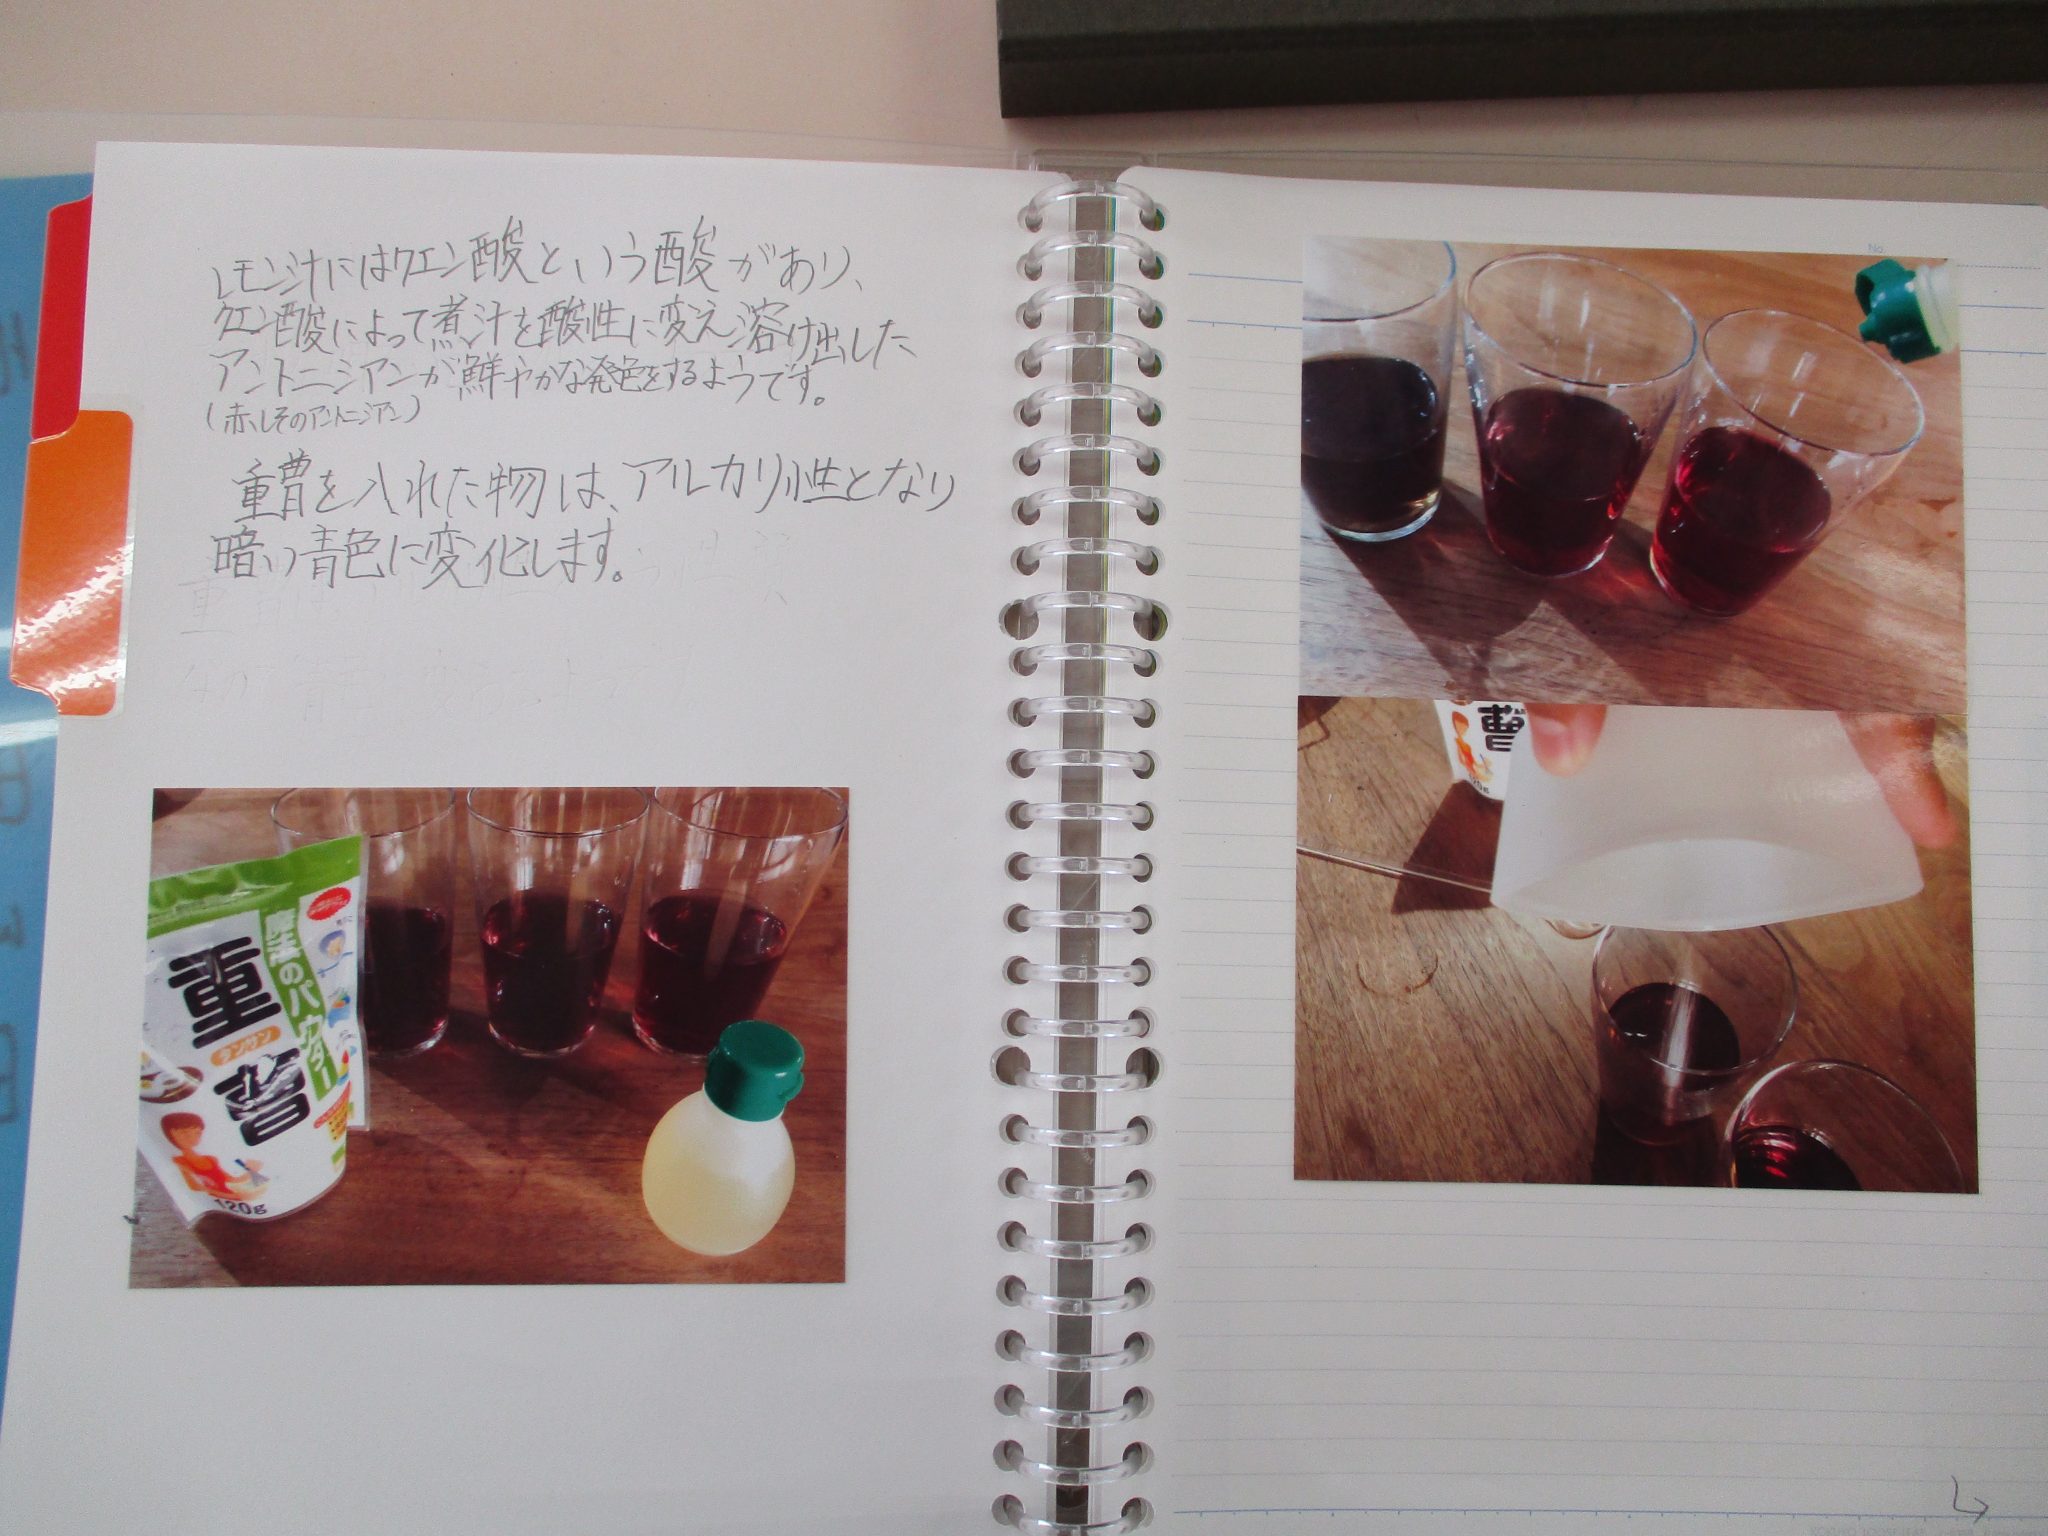 レモン汁にはクエン酸という酸があり、
クエン酸によって煮汁を酸性に変え溶け出した
アントニシアンが鮮やかな発色をするようです。
(赤しそのアントニシアン)
重曹を入れた物は、アルカリ性となり
暗い青色に変化します。
重曹
タンサン
魔法のパウダー
120g
No.
曹
120g